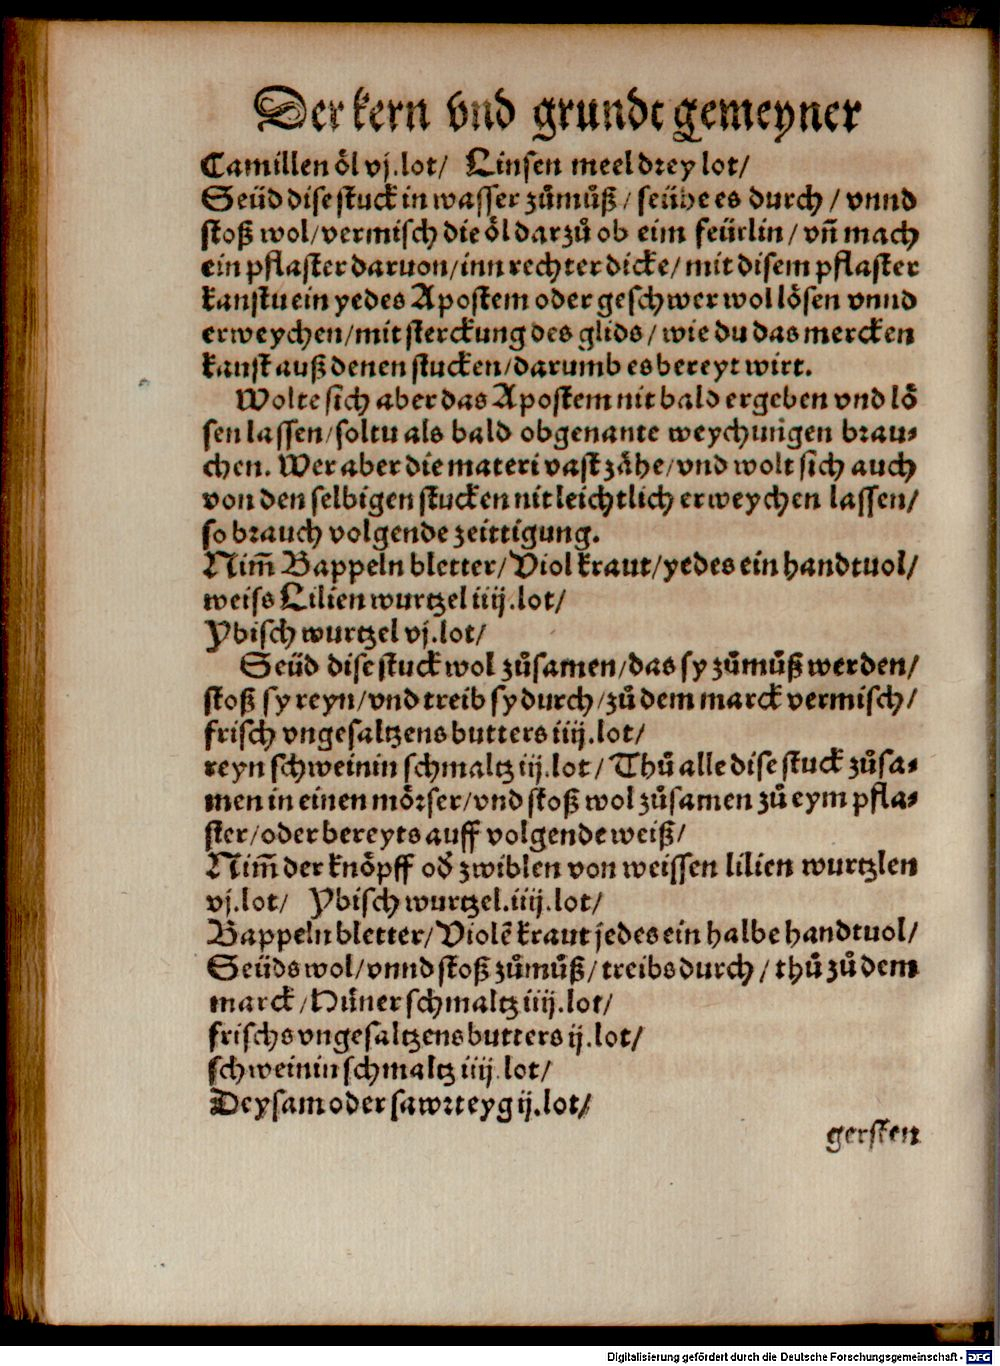 Der kern vnd grundt gemeyner
Camillen öl vj.lot/ Linsen meel drey lot/
Seüd dise stuck in wasser zůmůß/ seühe es durch / vnnd
stoß wol/vermisch die öl darzů ob eim feürlin/ vñ mach
ein pflaster daruon/inn rechter dicke/ mit disem pflaster
kanstu ein yedes Apostem oder geschwer wol lösen vnnd
erweychen/mit sterckung des glids/ wie du das mercken
kanst auß denen stucken/darumb es bereyt wirt.
Wolte sich aber das Apostem nit bald ergeben vnd lö
sen lassen/soltu als bald obgenante weychungen brau⸗
chen. Wer aber die materi vast zähe/vnd wolt sich auch
von den selbigen stucken nit leichtlich erweychen lassen/
so brauch volgende zeittigung.
Nim̃ Bappeln bletter/Viol kraut/yedes ein handtuol/
weiss Lilien wurtzel iiij.lot/
Ybisch wurtzel vj.lot/
Seüd dise stuck wol zůsamen/das sy zůmůß werden/
stoß sy reyn/vnd treib sy durch/zů dem marck vermisch/
frisch vngesaltzens butters iiij.lot/
reyn schweinin schmaltz iij.lot/ Thů alle dise stuck zůsa⸗
men in einen mörser/vnd stoß wol zůsamen zů eym pfla⸗
ster/oder bereyts auff volgende weiß/
Nim̃ der knöpff od̕ zwiblen von weissen lilien wurtzlen
vj.lot/ Ybisch wurtzel.iiij.lot/
Bappeln bletter/Violẽ kraut jedes ein halbe handtuol/
Seüds wol/vnnd stoß zůmůß/treibs durch/ thů zů dem
marck/Hüner schmaltz iiij.lot/
frischs vngesaltzens butters ij.lot/
schweinin schmaltz iiij.lot/
Deysam oder sawrteyg ij.lot/
gersten
Digitalisierung gefördert durch die Deutsche Forschungsgemeinschaft - DFG